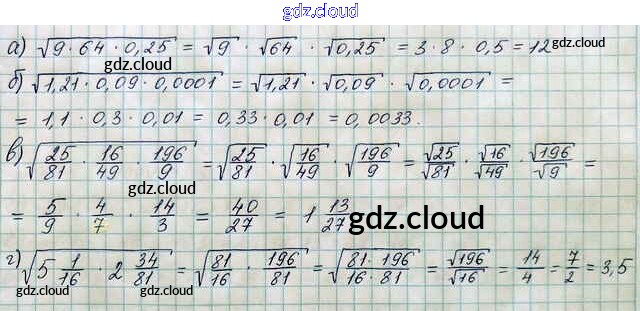 gdz.cloud
а) √(9 · 64 · 0,25) = √9 · √64 · √0,25 = 3 · 8 · 0,5 = 12
gdz.cloud gdz.cloud
б) √(1,21 · 0,09 · 0,0001) = √1,21 · √0,09 · √0,0001 =
= 1,1 · 0,3 · 0,01 = 0,33 · 0,01 = 0,0033.
в) √(25/81 · 16/49 · 196/9) = √(25/81) · √(16/49) · √(196/9) = √25/√81 · √16/√49 · √196/√9 =
gdz.cloud
= 5/9 · 4/7 · 14/3 = 40/27 = 1 13/27
gdz.cloud
г) √(5 1/16 · 2 34/81) = √(81/16 · 196/81) = √(81 · 196/16 · 81) = √196/√16 = 14/4 = 7/2 = 3,5
gdz.cloud gdz.cloud gdz.cloud